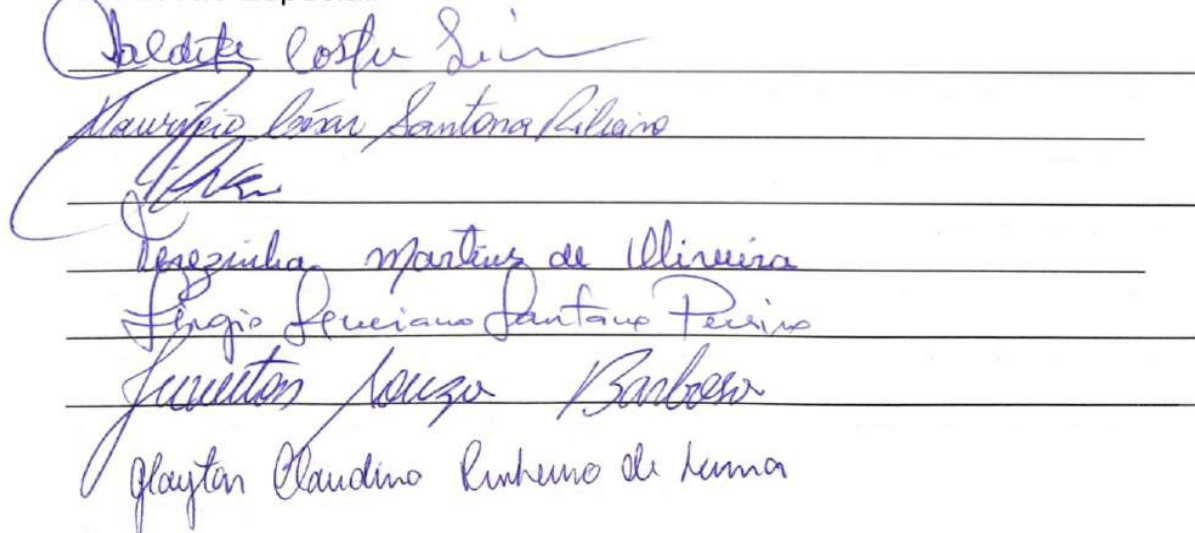 Costa
Maurício César Santana Ribeiro
Terezinha Martins de Oliveira
Sérgio Luciano Santana Pereira
Souza Barbosa
Glayton Claudino Pinheiro de Lima